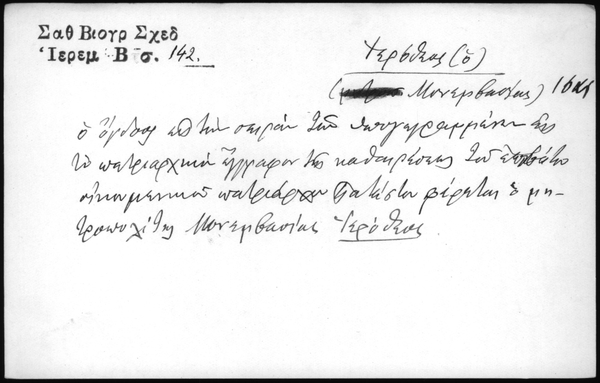 Σαθ Βιογρ Σχεδ
Ἱερεμ Β σ. 142.
Ἱερόθεος (ὁ)
( Μονεμβασίας) 16
ὁ ὄγδοος εἰς τὴν σειρὰν τῶν ὑπογεγραμμένων εἰς
τὸ πατριαρχικὸν ἔγγραφον τῆς καθαιρέσεως τοῦ
οἰκουμενικοῦ πατριάρχου φέρεται ὁ μη-
τροπολίτης Μονεμβασίας Ἱερόθεος.